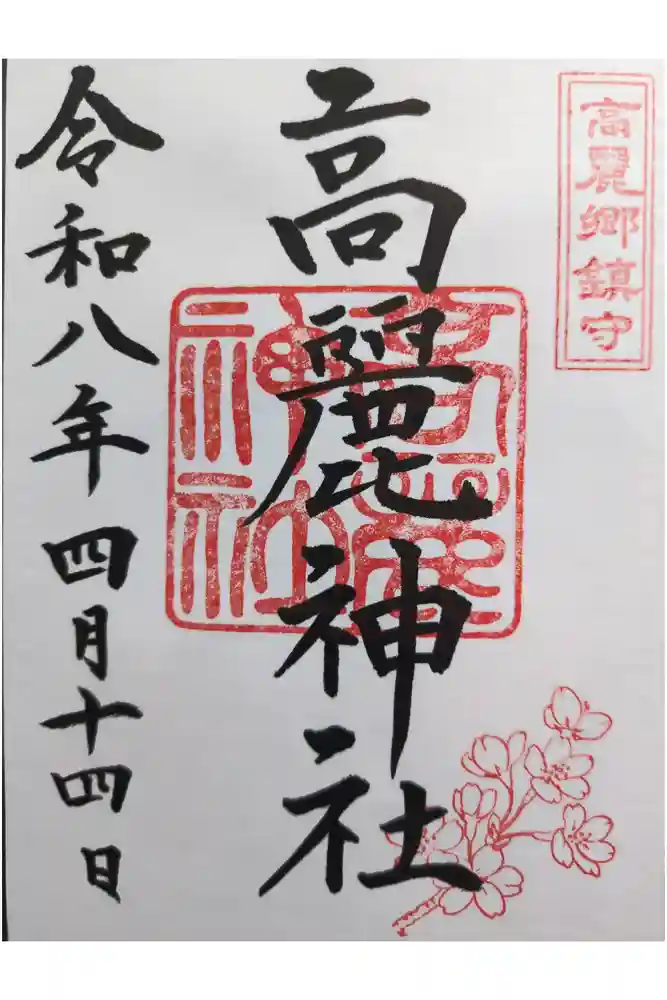 高麗郷鎮守
高麗神社
高麗神社
令和八年四月十四日